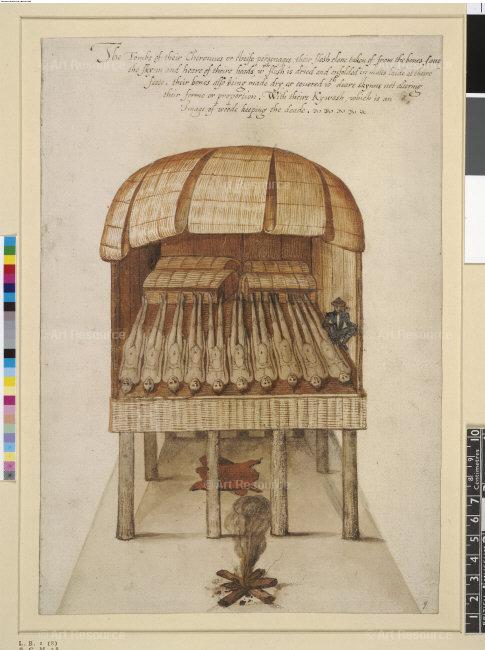 The Tombe of their Cherounes or cheife personages, their flesh clene taken of from the bones saue
the skynn and heare of theire heads, wch flesh is dried and enfolded in matts laide at theire
feete. their bones also being made dry ar couered wth deare skynns not altering
their forme or proportion. With theire Kywash, which is an
Image of woode keeping the deade.
© Art Resource
© Art Resource
© Art Resource
© Art Resource
© Art Resource
9
10
9
8
7
6
5
4
3
2
1
Centimetres